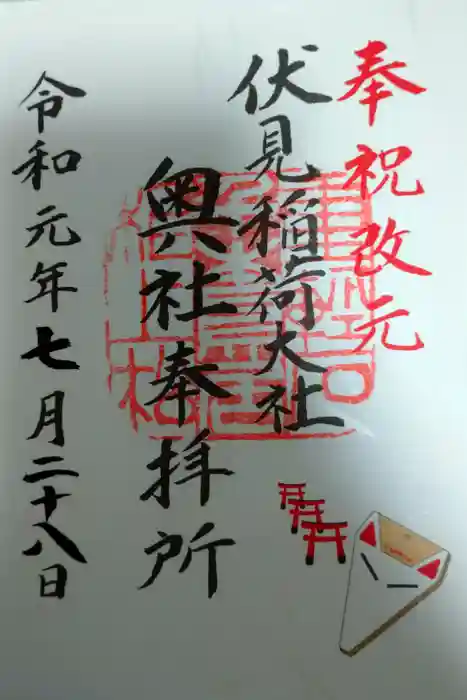 奉祝改元
伏見稲荷大社
奥社奉拝所
令和元年七月二十八日